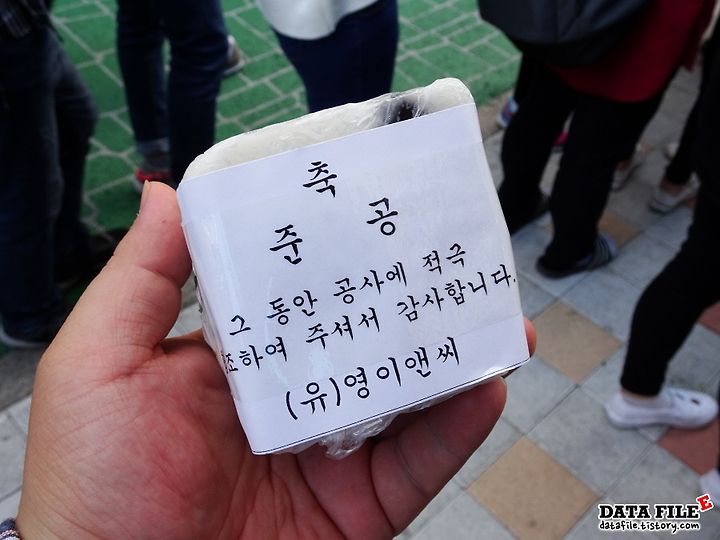 축
준 공
그 동안 공사에 적극
조하여 주셔서 감사합니다.
(유)영이앤씨
DATA FILE E
datafile.tistory.com